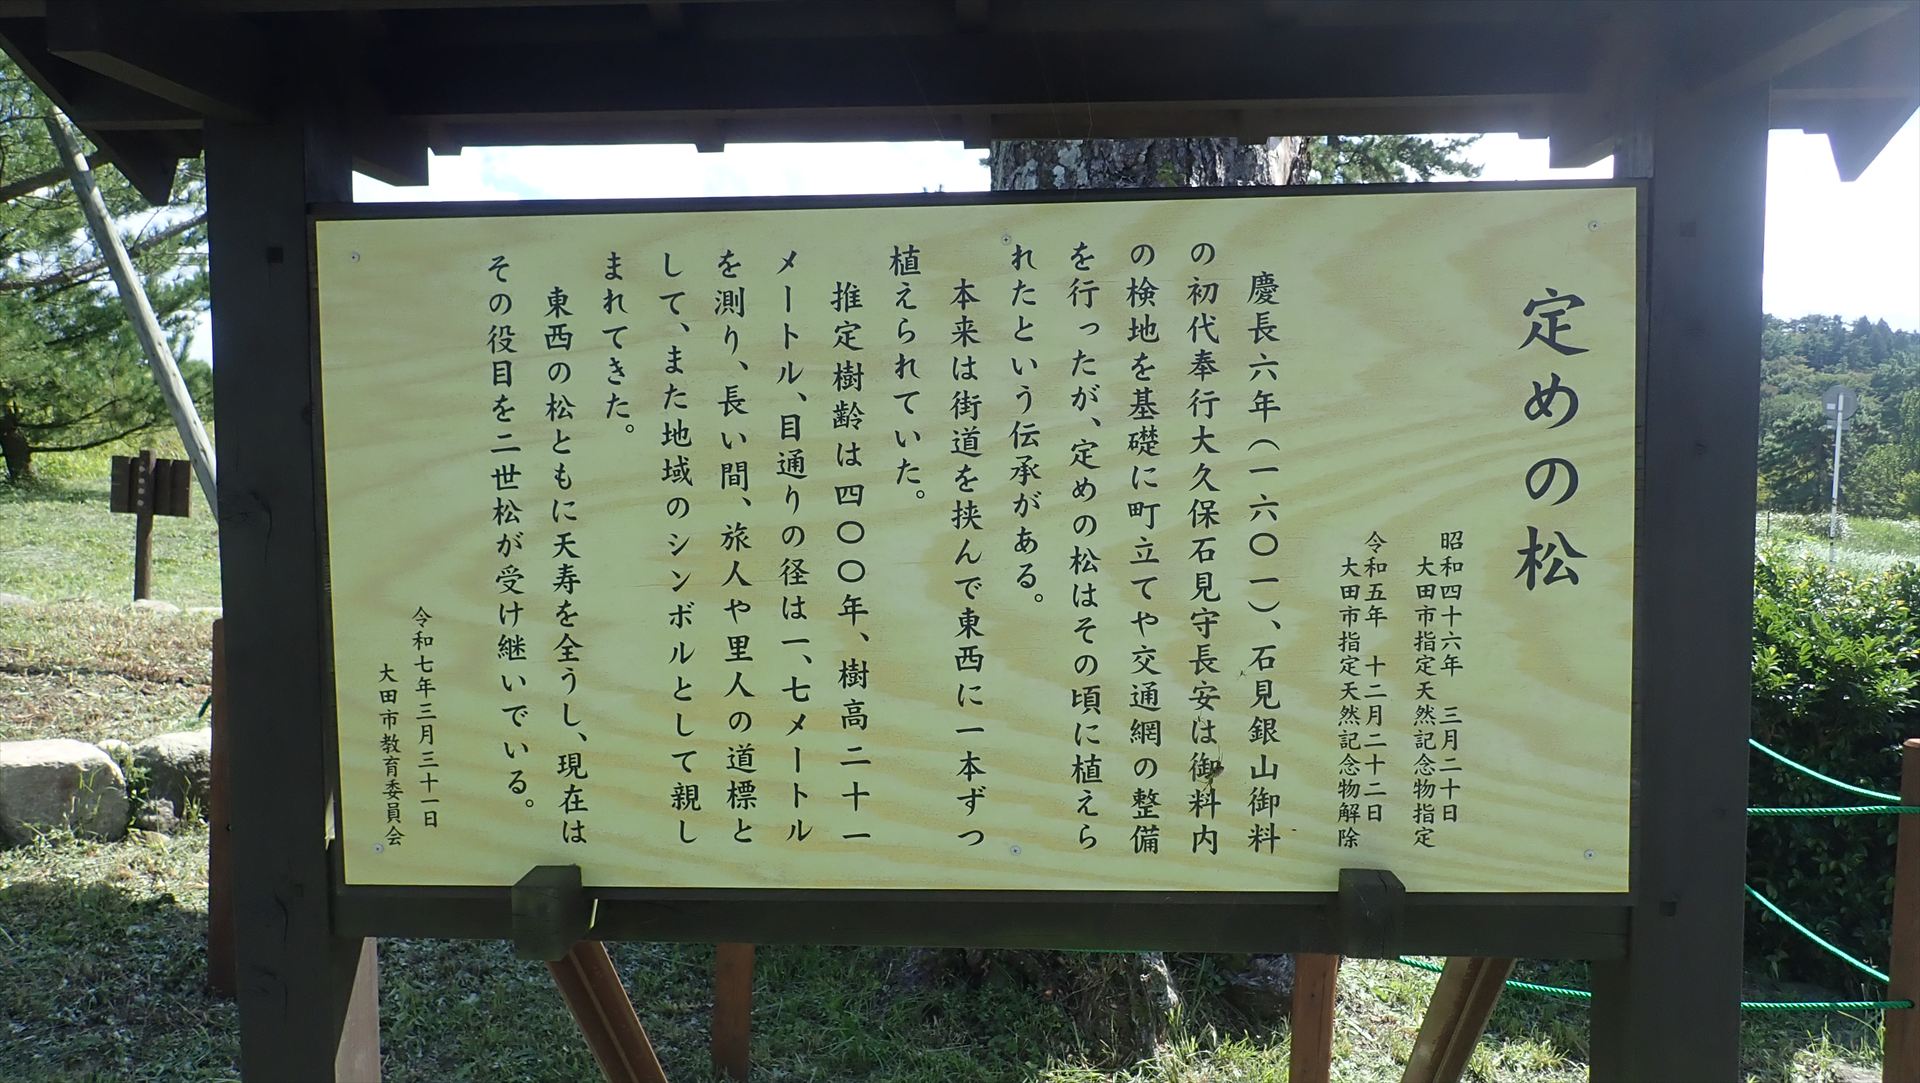 定めの松
昭和四十六年　三月二十日
大田市指定天然記念物指定
令和五年　十二月二十二日
大田市指定天然記念物解除
慶長六年（一六〇一）、石見銀山御料
の初代奉行大久保石見守長安は御料内
の検地を基礎に町立てや交通網の整備
を行ったが、定めの松はその頃に植えら
れたという伝承がある。
本来は街道を挟んで東西に一本ずつ
植えられていた。
推定樹齢は四〇〇年、樹高二十一
メートル、目通りの径は一、七メートル
を測り、長い間、旅人や里人の道標と
して、また地域のシンボルとして親し
まれてきた。
東西の松ともに天寿を全うし、現在は
その役目を二世松が受け継いでいる。
令和七年三月三十一日
大田市教育委員会